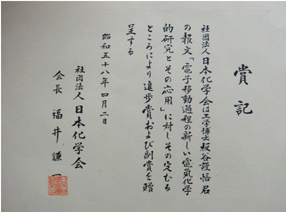 賞記
社団法人日本化学会は工学博士板谷謹悟君
の報文「電子移動過程の新しい電気化学
的研究とその応用」に対しその定むる
ところにより進歩賞および副賞を贈
呈する
昭和五十八年四月二日
社団法人日本化学会
会長 福井謙一